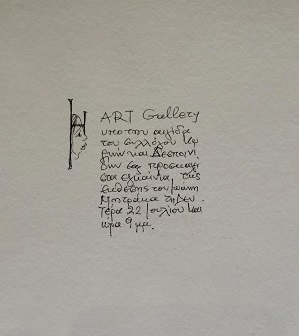 H ART Gallery
υπο την αιγίδα
του συλλόγου
και Δεσποινί
δων σας προσκαλεί
στα εγκαίνια της
εκθεσης του Γιαννη
Μητράκα τη Δευ
τέρα 22 Ιουλίου και
ώρα 9 μμ.